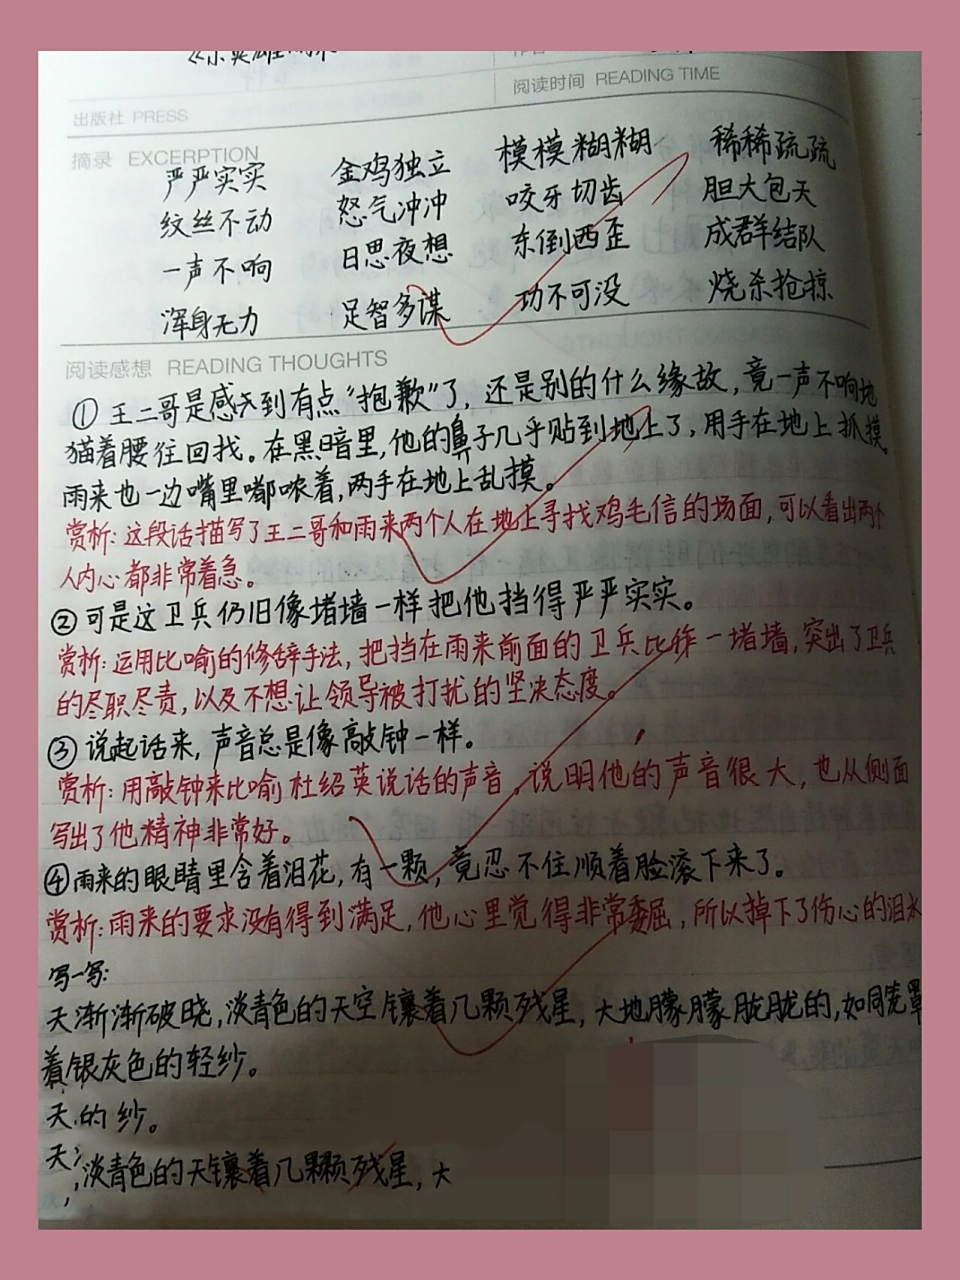 《小英雄雨来
阅读时间 READING TIME
出版社 PRESS
摘录 EXCERPTION
严严实实 金鸡独立 模模糊糊 稀稀疏疏
纹丝不动 怒气冲冲 咬牙切齿 胆大包天
一声不响 日思夜想 东倒西歪 成群结队
浑身无力 足智多谋 功不可没 烧杀抢掠
阅读感想 READING THOUGHTS
① 王二哥是感到有点“抱歉”了，还是别的什么缘故，竟一声不响地
猫着腰往回找。在黑暗里，他的鼻子几乎贴到地上了，用手在地上抓摸。
雨来也一边嘴里嘟哝着，两手在地上乱摸。
赏析：这段话描写了王二哥和雨来两个人在地上寻找鸡毛信的场面，可以看出两个
人内心都非常着急。
②可是这卫兵仍旧像堵墙一样把他挡得严严实实。
赏析：运用比喻的修辞手法，把挡在雨来前面的卫兵比作一堵墙，突出了卫兵
的尽职尽责，以及不想让领导被打扰的坚决态度。
③ 说起话来，声音总是像敲钟一样。
赏析：用敲钟来比喻杜绍英说话的声音，说明他的声音很大，也从侧面
写出了他精神非常好。
④雨来的眼睛里含着泪花，有一颗，竟忍不住顺着脸滚下来了。
赏析：雨来的要求没有得到满足，他心里觉得非常委屈，所以掉下了伤心的泪水
写一写：
天渐渐破晓，淡青色的天空镶着几颗残星，大地朦朦胧胧的，如同笼罩
着银灰色的轻纱。
天的纱。
天淡青色的天镶着几颗残星，大